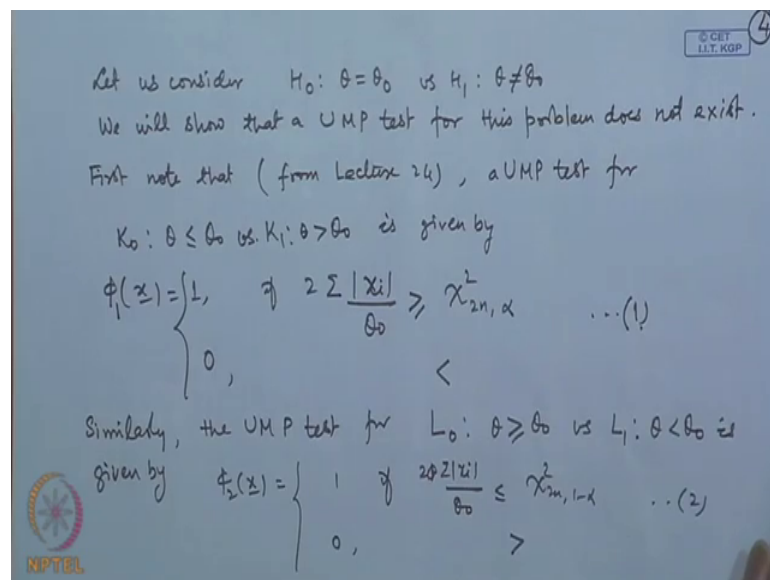 4
© CET
I.I.T. KGP
Let us consider H₀: θ = θ₀ vs H₁: θ ≠ θ₀
We will show that a UMP test for this problem does not exist.
First note that (from Lecture 24), a UMP test for
K₀: θ ≤ θ₀ vs. K₁: θ > θ₀ is given by
ϕ₁(x) = { 1, if 2 Σ |xi| / θ₀ ≥ χ²₂ₙ,α ...(1)
0, <
Similarly, the UMP test for L₀: θ ≥ θ₀ vs L₁: θ < θ₀ is
given by ϕ₂(x) = { 1 if 2 Σ|xi| / θ₀ ≤ χ²₂ₙ,₁₋α ..(2)
0, >
NPTEL